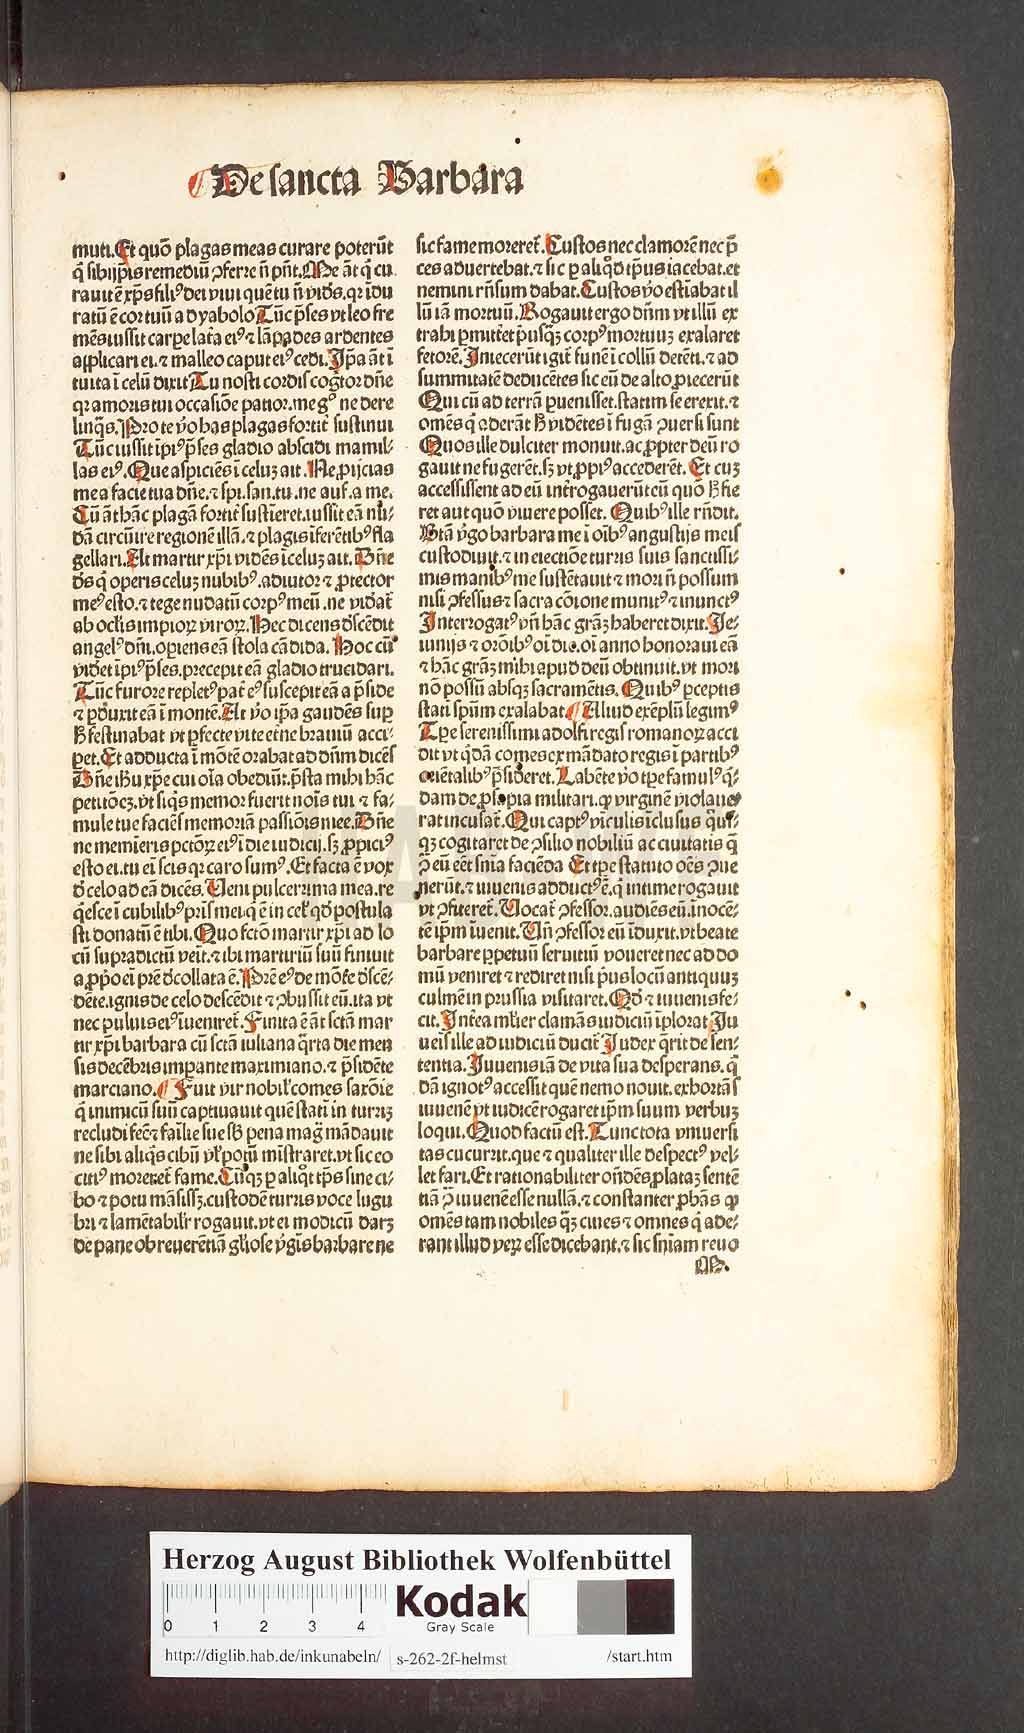 De sancta Barbara
muti. Et quō plagas meas curare poterūt
q̄ sibijp̄is remediū ꝯferre n̄ pn̄t. Me āt q̄ cu
rauit ē xp̄s filiꝰ dei viui quē tu n̄ vidꝭ. qꝛ idu
ratū ē cor tuū a dyabolo Tūc p̄ses vt leo fre
mēs iussit carpe laťa eiꝰ ⁊ lāpades ardentes
applicari ei. ⁊ malleo caput eiꝰ cedi. Ip̄a āt ī
tuita ī celū dixit Tu nosti cordis cogťor dn̄e
qꝛ amoris tui occasiōe patior. me gͦ ne dere
linq̄s. Pro te v̄o has plagas fortiť sustinui
Tūc iussit ip̄iꝰ p̄ses gladio abscidi mamil-
las eiꝰ. Que aspiciēs ī celuꝫ ait. Ne ꝓijcias
me a facie tua dn̄e. ⁊ spi. san. tu. ne auf. a me.
Cū āt hāc plagā fortiť sustīeret. iussit eā nu-
dā circūire regionē illā. ⁊ plagis īferētibꝰ fla
gellari. At martir xp̄i vidēs ī celuꝫ ait. Dn̄e
dꝰs q̄ operis celuꝫ nubibꝰ. adiutor ⁊ ꝓtector
meꝰ esto. ⁊ tege nudatū corpꝰ meū. ne videať
ab oclis impioꝝ viroꝝ. Hec dicens dꝭscēdit
angelꝰ dn̄i. opiens eā stola cādida. Hoc cū
videt ip̄iꝰ p̄ses. precepit eā gladio trucidari.
Tūc furore repletꝰ pať eꝰ suscepit eā a p̄side
⁊ ꝑduxit eā ī montē. At v̄o ip̄a gaudēs suꝑ
H̄ festinabat vt ꝑfecte vite etīne brauiū acci-
pet. Et adducta ī mōtē orabat ad dn̄m dicēs
Dn̄e ihu xp̄e cui oīa obediūt. p̄sta mihi hāc
petitōeꝫ. vt siq̄s memor fuerit nois tui ⁊ fa-
mule tue faciēs memoriā passiōis mee. Dn̄e
ne memieris pctōꝝ eiꝰ ī die iudicij. sꝫ ꝓpiciꝰ
esto ei. tu ei scis qꝛ caro sumꝰ. Et facta ē vox
d̄ celo ad eā dicēs. Veni pulcerrima mea. re
q̄esce ī cubilibꝰ pr̄is mei. q̄ ē in celꝭ. qd̄ postula
sti donatū ē tibi. Quo fctō martir xp̄i ad lo
cū supradictū veit. ⁊ ibi martiriū suū finiuit
a ꝓpo ei pr̄e dꝭcollata ē. Pr̄e eꝰ de mōte dꝭscē-
dēte. ignis de celo descēdit ⁊ ꝯbussit eū. ita vt
nec puluis eiꝰ iueniret. Finita ē āt sctā mar
tir xp̄i barbara cū sctā iuliana q̄rta die men
sis decēbris impante maximiano. ⁊ p̄sidēte
marciano. Fuit vir nobilꝭ comes saxōie
q̄ inimicū suū captiuauit quē stati in turriꝫ
recludi fec̄ ⁊ failie sue sb̄ pena mag̃ mādauit
ne sibi aliq̄s cibū vꝉ potū mīstraret. vt sic eo
citiꝰ moreret fame. Cūqꝫ ꝑ aliqͦt tp̄s sine ci-
bo ⁊ potu māsissꝫ. custodē turris voce lugu
bri ⁊ lamētabilꝭr rogauit. vt ei modicū darꝫ
de pane ob reuerētiā glīose v̄gīs barbare ne
sic fame moreret. Custos nec clamorē nec p̄
ces aduertebat. ⁊ sic ꝑ aliqͦd tp̄us iacebat. et
nemini rn̄sum dabat. Custos v̄o estiabat il
lū iā mortuū. Rogauit ergo dn̄m vt illū ex
trahi ꝑmitťet p̄usqꝫ corpꝰ mortuuꝫ exalaret
fetorē. Iniecerūt igiť funē ī collū detēti. ⁊ ad
summitatē deducētes sic eū de alto ꝓiecerūt
Qui cū ad terrā puenisset. statim se erexit. ⁊
omēs q̄ aderāt h̄ vidētes ī fugā ꝯuersi sunt
Quos ille dulciter monuit. ac ꝓpter deū ro
gauit ne fugerēt. sꝫ vt ꝓpiꝰ accederēt. Et cuꝫ
accessissent ad eū inťrogauerūt cū quō h̄ fie
ret aut quō viuere posset. Quibꝰ ille rn̄dit.
Btā v̄go barbara me ī oībꝰ angustijs meis
custodiuit. ⁊ in eiectiōe turris suis sanctissi-
mis manibꝰ me sustētauit ⁊ mori n̄ possum
nisi ꝯfessus ⁊ sacra cōione munitꝰ ⁊ inunctꝰ
Interrogatꝰ vn̄ hāc grāꝫ haberet dixit. Ie-
iunijs ⁊ orōibꝰ oī die. oī anno honoraui eā
⁊ hāc grāꝫ mihi apud deū obtinuit. vt mori
nō possū absqꝫ sacramētis. Quibꝰ ꝑceptis
stati spūm exalabat Aliud exēplū legimꝰ
Tpe serenissimi adolfi regis romanoꝝ acci
dit vt q̄dā comes ex mādato regis ī partibꝰ
oriētalibꝰ p̄sideret. Labēte v̄o tpe famulꝰ q̄-
dam de ꝓsapia militari. ꝙ virginē violaue
rat incusať. Qui captꝰ vīculis īclusus q̄uis-
qꝫ cogitaret de ꝯsilio nobiliū ac ciuitatis q̄
ꝓ eū eēt snīa faciēda Et tpe statuto oēs ꝯue
nerūt. ⁊ iuuenis adductꝰ ē. q̄ intime rogauit
vt ꝯfiteret. Vocať ꝯfessor. audiēs eū. inocē-
tē ip̄m iuenit. Vn̄ ꝯfessor eū īduxit. vt beate
barbare ꝑpetuū seruitiū voueret nec ad do
mū veniret ⁊ rediret nisi p̄us locū antiquuꝫ
culmē in prussia visitaret. Qd̄ ⁊ iuuenis fe-
cit. Inťea mľier clamās iudiciū īplorat. Iu
uenis ille ad iudiciū duciť Iudex q̄rit de sen-
tentia. Iuuenis iā de vita sua desperans. q̄
dā ignotꝰ accessit quē nemo nouit. exhortās
iuuenē vt iudicē rogaret ip̄m suum verbuꝫ
loqui. Quod factū est. Tunc tota vniuersi
tas cucurit. que ⁊ qualiter ille despectꝰ vel-
let fari. Et rationabiliter oñdēs ꝓlataꝫ sentē
tiā ꝓ iuuenē esse nullā. ⁊ constanter ꝓbās ꝙ
omēs tam nobiles q̄ꝫ ciues ⁊ omnes q̄ ade-
rant illud veꝝ esse dicebant. ⁊ sic snīam reuo
M.
HAB
Herzog August Bibliothek Wolfenbüttel
0 1 2 3 4
Kodak
Gray Scale
http://diglib.hab.de/inkunabeln/ s-262-2f-helmst /start.htm